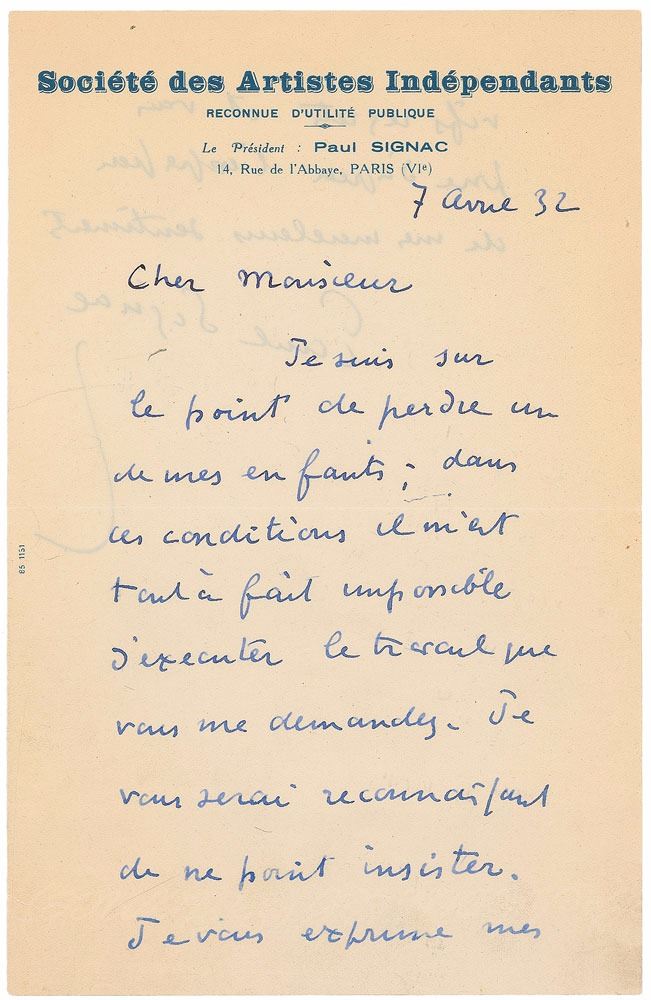 Société des Artistes Indépendants
RECONNUE D'UTILITÉ PUBLIQUE
Le Président : Paul SIGNAC
14, Rue de l'Abbaye, PARIS (VIe)
7 avril 32
Cher Monsieur
Je suis sur
le point de perdre un
de mes enfants ; dans
ces conditions il m'est
tout à fait impossible
d'executer le travail que
vous me demandez. Je
vous serai reconnaissant
de ne point insister.
Je vous exprime mes
85 1151
Paul Signac